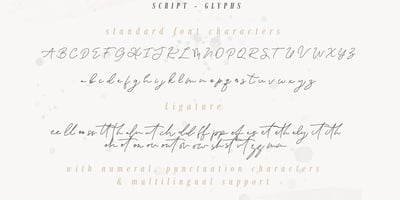 SCRIPT - GLYPHS
standard font characters
A B C D E F G H I J K L M N O P Q R S T U V W X Y Z
a b c d e f g h i j k l m n o p q r s t u v w x y z
ligature
with numeral, punctuation characters
& multilingual support